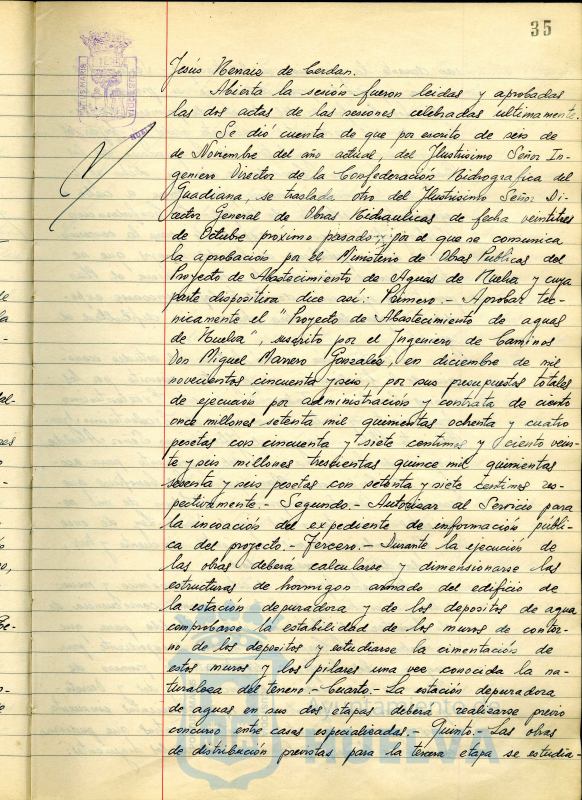 35
Jesús Renaie de Cerdan.
Abierta la sesión fueron leidas y aprobadas
las dos actas de las sesiones celebradas ultimamente.
Se dió cuenta de que por escrito de seis de
de Noviembre del año actual, del Ilustrisimo Señor In-
geniero Director de la Confederación Hidrografica del
Guadiana, se traslada otro del Ilustrisimo Señor Di-
rector General de Obras Hidraulicas de fecha veintitres
de Octubre próximo pasado y por el que se comunica
la aprobación por el Ministerio de Obras Publicas del
Proyecto de Abastecimiento de Aguas de Huelva y cuya
parte dispositiva dice así: Primero.- Aprobar tec-
nicamente el "Proyecto de Abastecimiento de aguas
de Huelva", suscrito por el Ingeniero de Caminos
Don Miguel Marrero Gonzales, en diciembre de mil
novecientos cincuenta y seis, por sus presupuestos totales
de ejecución por administración y contrato de ciento
once millones setenta mil quinientas ochenta y cuatro
pesetas con cincuenta y siete centimos y ciento vein-
te y seis millones trescientas quince mil quinientas
sesenta y seis pesetas con setenta y siete centimos res-
pectivamente.- Segundo.- Autorizar al Servicio para
la incoación del expediente de información públi-
ca del proyecto.- Tercero.- Durante la ejecución de
las obras deberá calcularse y dimensionarse las
estructuras de hormigon armado del edificio de
la estación depuradora y de los depositos de agua
comprobarse la estabilidad de los muros de contor-
no de los depositos y estudiarse la cimentación de
estos muros y los pilares una vez conocida la na-
turaleza del terreno.- Cuarto.- La estación depuradora
de aguas en sus dos etapas deberá realizarse previo
concurso entre casas especializadas.- Quinto.- Las obras
de distribución previstas para la tercera etapa se estudia-